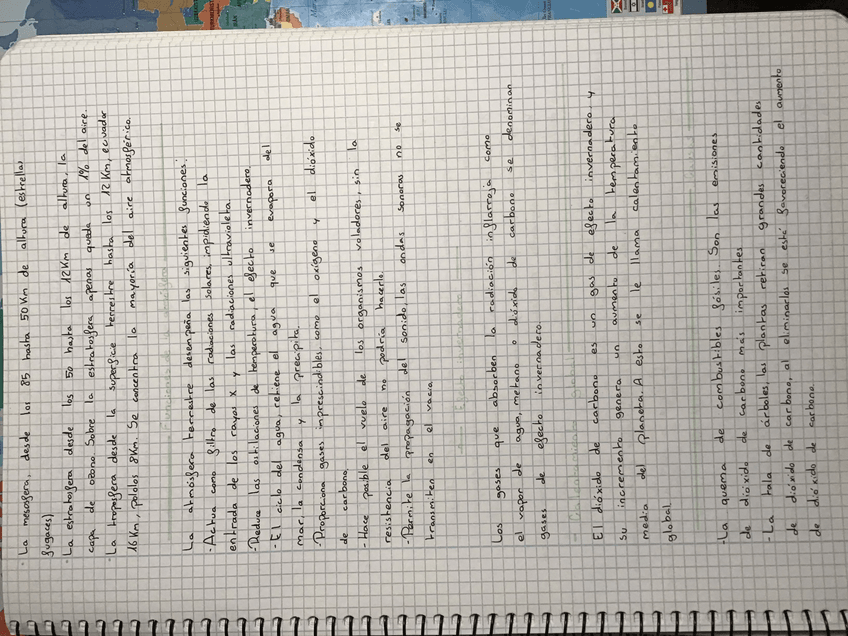 - La mesosfera, desde los 85 hasta 50 Km de altura (estrellas
fugaces)
- La estratosfera desde los 50 hasta los 12 Km de altura, la
capa de ozono. Sobre la estratosfera apenas queda un 1% del aire.
- La troposfera desde la superficie terrestre hasta los 12 Km, ecuador
16 Km, pololos 8 Km. Se concentra la mayoría del aire atmosférico.
La atmósfera terrestre desempeña las siguientes funciones:
- Actua como filtro de las radiaciones solares, impidiendo la
entrada de los rayos X y las radiaciones ultravioleta.
- Reduce las oscilaciones de temperatura, el efecto invernadero.
- El ciclo del agua, retiene el agua que se evapora del
mar, la condensa y la precipita.
- Proporciona gases imprescindibles, como el oxígeno y el dióxido
de carbono.
- Hace posible el vuelo de los organismos voladores, sin la
resistencia del aire no podría hacerlo.
- Permite la propagación del sonido, las ondas sonoras no se
transmiten en el vacío.
Los gases que absorben la radiación inflarroja como
el vapor de agua, metano o dióxido de carbono se denominan
gases de efecto invernadero.
El dióxido de carbono es un gas de efecto invernadero y
su incremento genera un aumento de la temperatura
media del planeta. A esto se le llama calentamiento
global.
- La quema de combustibles fósiles. Son las emisiones
de dióxido de carbono más importantes.
- La tala de árboles, las plantas retiran grandes cantidades
de dióxido de carbono, al eliminarlos se esté favoreciendo el aumento
de dióxido de carbono.